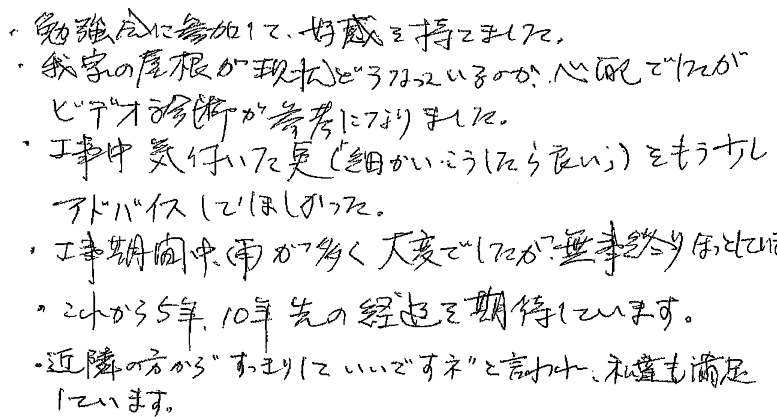 ・勉強会に参加して、好感を持てました。
・我家の屋根が現状どうなっているのか、心配でしたが
ビデオ診断が参考になりました。
・工事中気付いた点(細かい・こうしたら良い)をもう少し
アドバイスしてほしかった。
・工事期間中、(雨)が多く大変でしたが、無事終りほっとしてい
・これから5年、10年先の経過を期待しています。
・近隣の方から"すっきりしていいですネ"と言われ、私達も満足
しています。